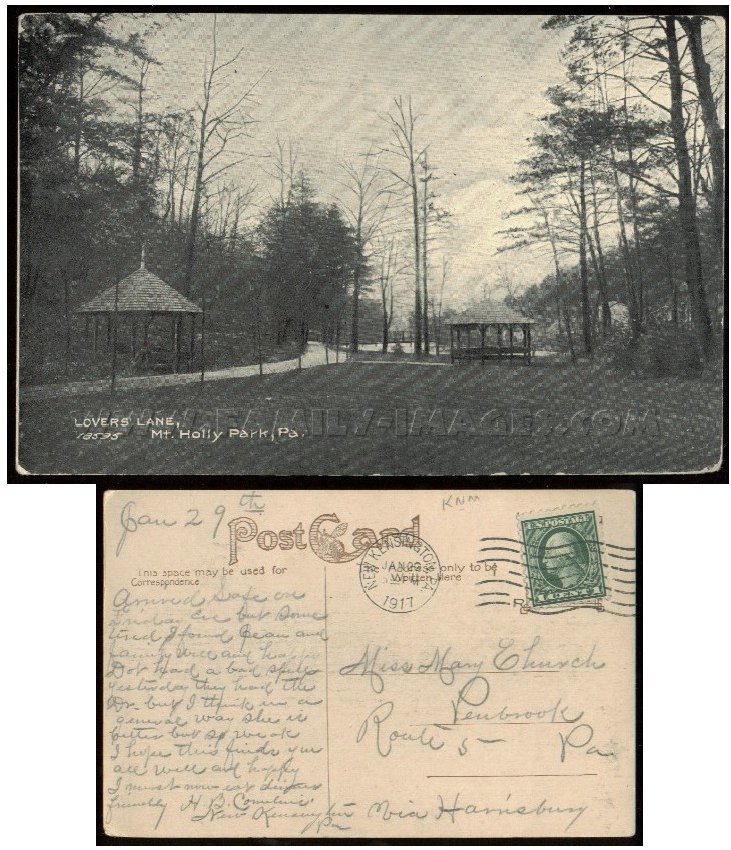 LOVERS' LANE,
18595 Mt. Holly Park, Pa.
WWW.FAMILY-IMAGES.COM
Jan 29th
KNM
Post Card
This space may be used for
Correspondence
The Address only to be
Written Here
NEW KENSINGTON, PA.
JAN 29
1917
U.S. POSTAGE
1 CENT 1
Arrived Safe on
Friday Eve but Some
tired I found Bean and
family well and happy
Dot had a bad spell
yesterday they had the
Dr. but I think in a
general way she is
better but so weak
I hope this finds you
all well and happy
I must now eat dinner
friendly H. B.
New Kensington
Pa
Miss Mary Church
Penbrook
Route 5 Pa
Via Harrisburg